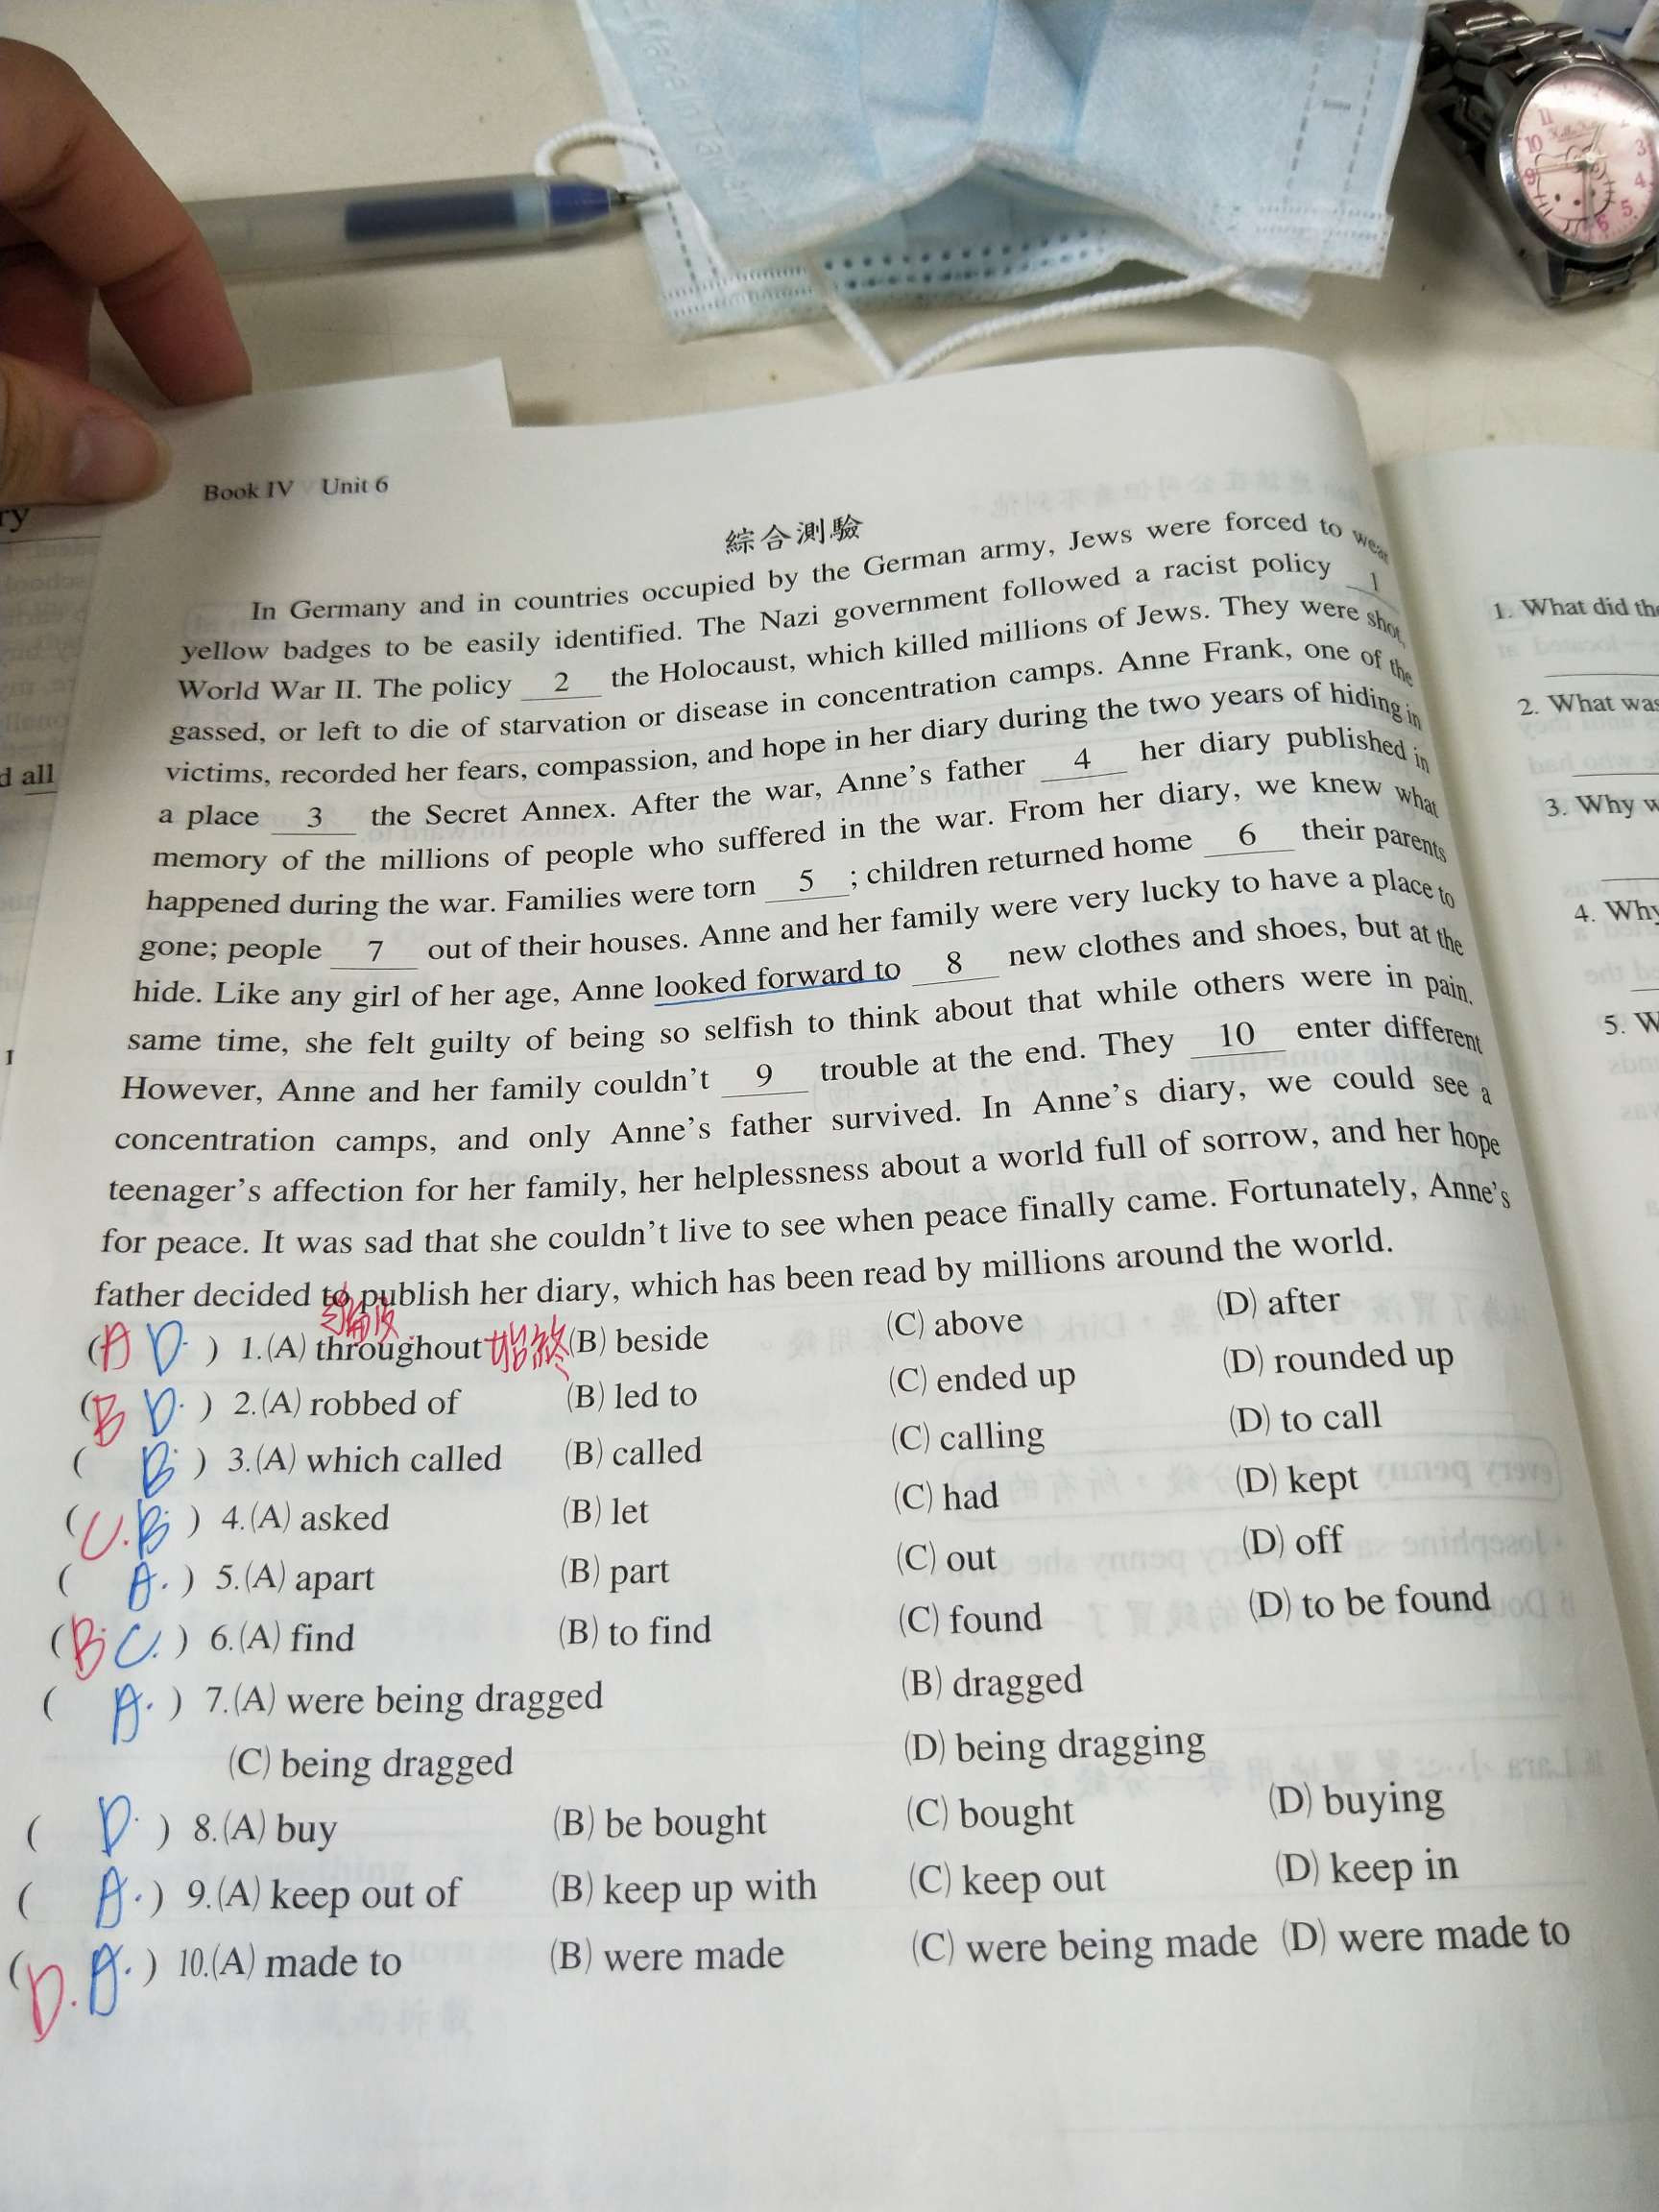 Book IV Unit 6
綜合測驗
In Germany and in countries occupied by the German army, Jews were forced to wear
yellow badges to be easily identified. The Nazi government followed a racist policy 1
World War II. The policy 2 the Holocaust, which killed millions of Jews. They were shot,
gassed, or left to die of starvation or disease in concentration camps. Anne Frank, one of the
victims, recorded her fears, compassion, and hope in her diary during the two years of hiding in
a place 3 the Secret Annex. After the war, Anne's father 4 her diary published in
memory of the millions of people who suffered in the war. From her diary, we knew what
happened during the war. Families were torn 5 ; children returned home 6 their parents
gone; people 7 out of their houses. Anne and her family were very lucky to have a place to
hide. Like any girl of her age, Anne looked forward to 8 new clothes and shoes, but at the
same time, she felt guilty of being so selfish to think about that while others were in pain.
However, Anne and her family couldn't 9 trouble at the end. They 10 enter different
concentration camps, and only Anne's father survived. In Anne's diary, we could see a
teenager's affection for her family, her helplessness about a world full of sorrow, and her hope
for peace. It was sad that she couldn't live to see when peace finally came. Fortunately, Anne's
father decided to publish her diary, which has been read by millions around the world.
(A D.) 1.(A) throughout 始終 (B) beside (C) above (D) after
(B D.) 2.(A) robbed of (B) led to (C) ended up (D) rounded up
( B.) 3.(A) which called (B) called (C) calling (D) to call
(C. B.) 4.(A) asked (B) let (C) had (D) kept
( A.) 5.(A) apart (B) part (C) out (D) off
(B. C.) 6.(A) find (B) to find (C) found (D) to be found
( A.) 7.(A) were being dragged (B) dragged
(C) being dragged (D) being dragging
( D.) 8.(A) buy (B) be bought (C) bought (D) buying
( A.) 9.(A) keep out of (B) keep up with (C) keep out (D) keep in
(D. A.) 10.(A) made to (B) were made (C) were being made (D) were made to
ry
d all
1. What did the
2. What was
3. Why w
4. Why
5. W